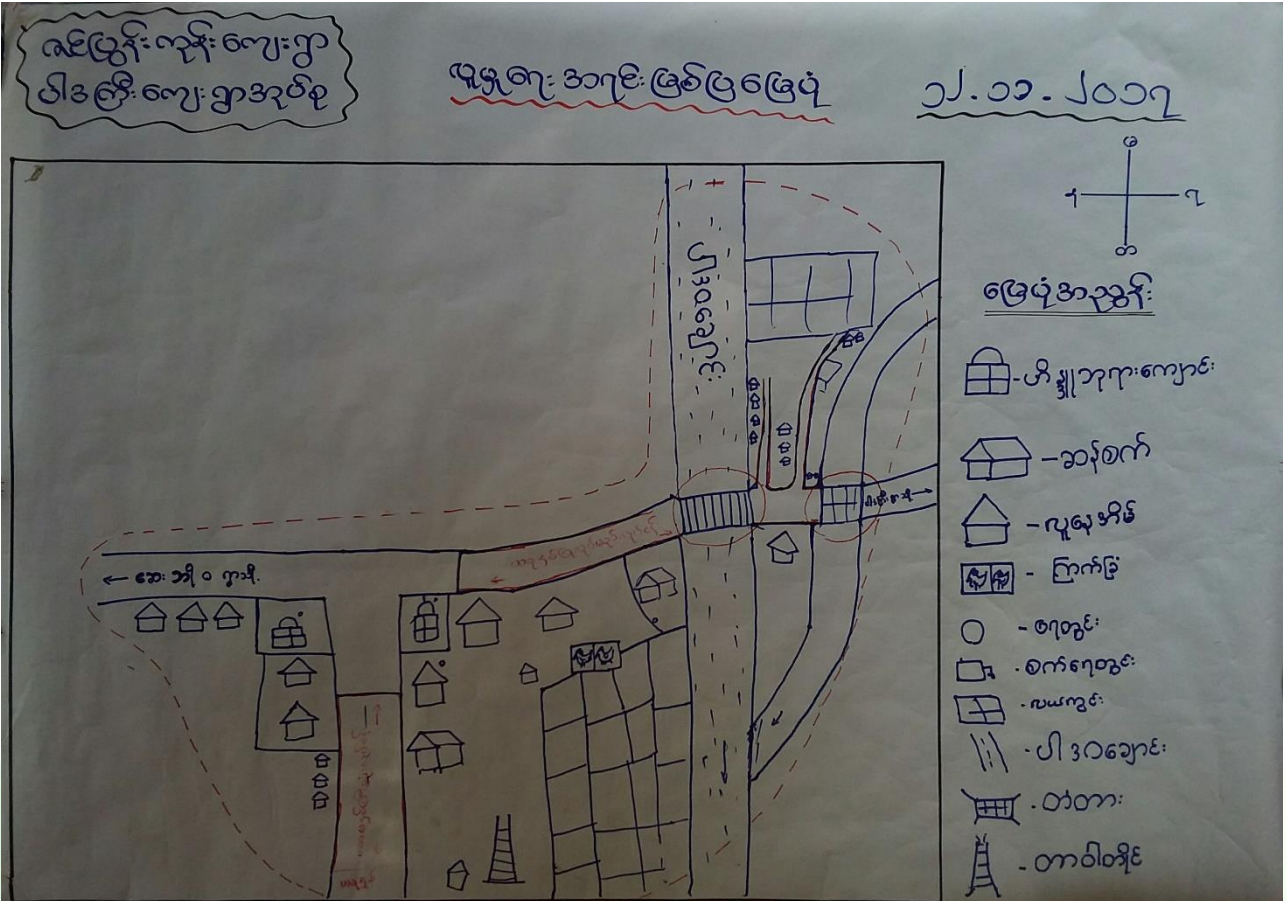 ဇင်ပြွန်းကုန်းကျေးရွာ
ပါဒကြီးကျေးရွာအုပ်စု
လူမှုရေး အရင်းအမြစ်ပြမြေပုံ
၁၂.၁၁.၂၀၁၇
မ
န
ရ
တ
ပါဒဂချောင်း
မြေပုံအညွှန်း
-ဟိန္ဒူဘုရားကျောင်း
-ဆန်စက်
-လူနေအိမ်
- ကြက်ခြံ
- ရေတွင်း
- စက်ရေတွင်း
- လယ်ကွင်း
- ပါဒဂချောင်း
- တံတား
- တာဝါတိုင်